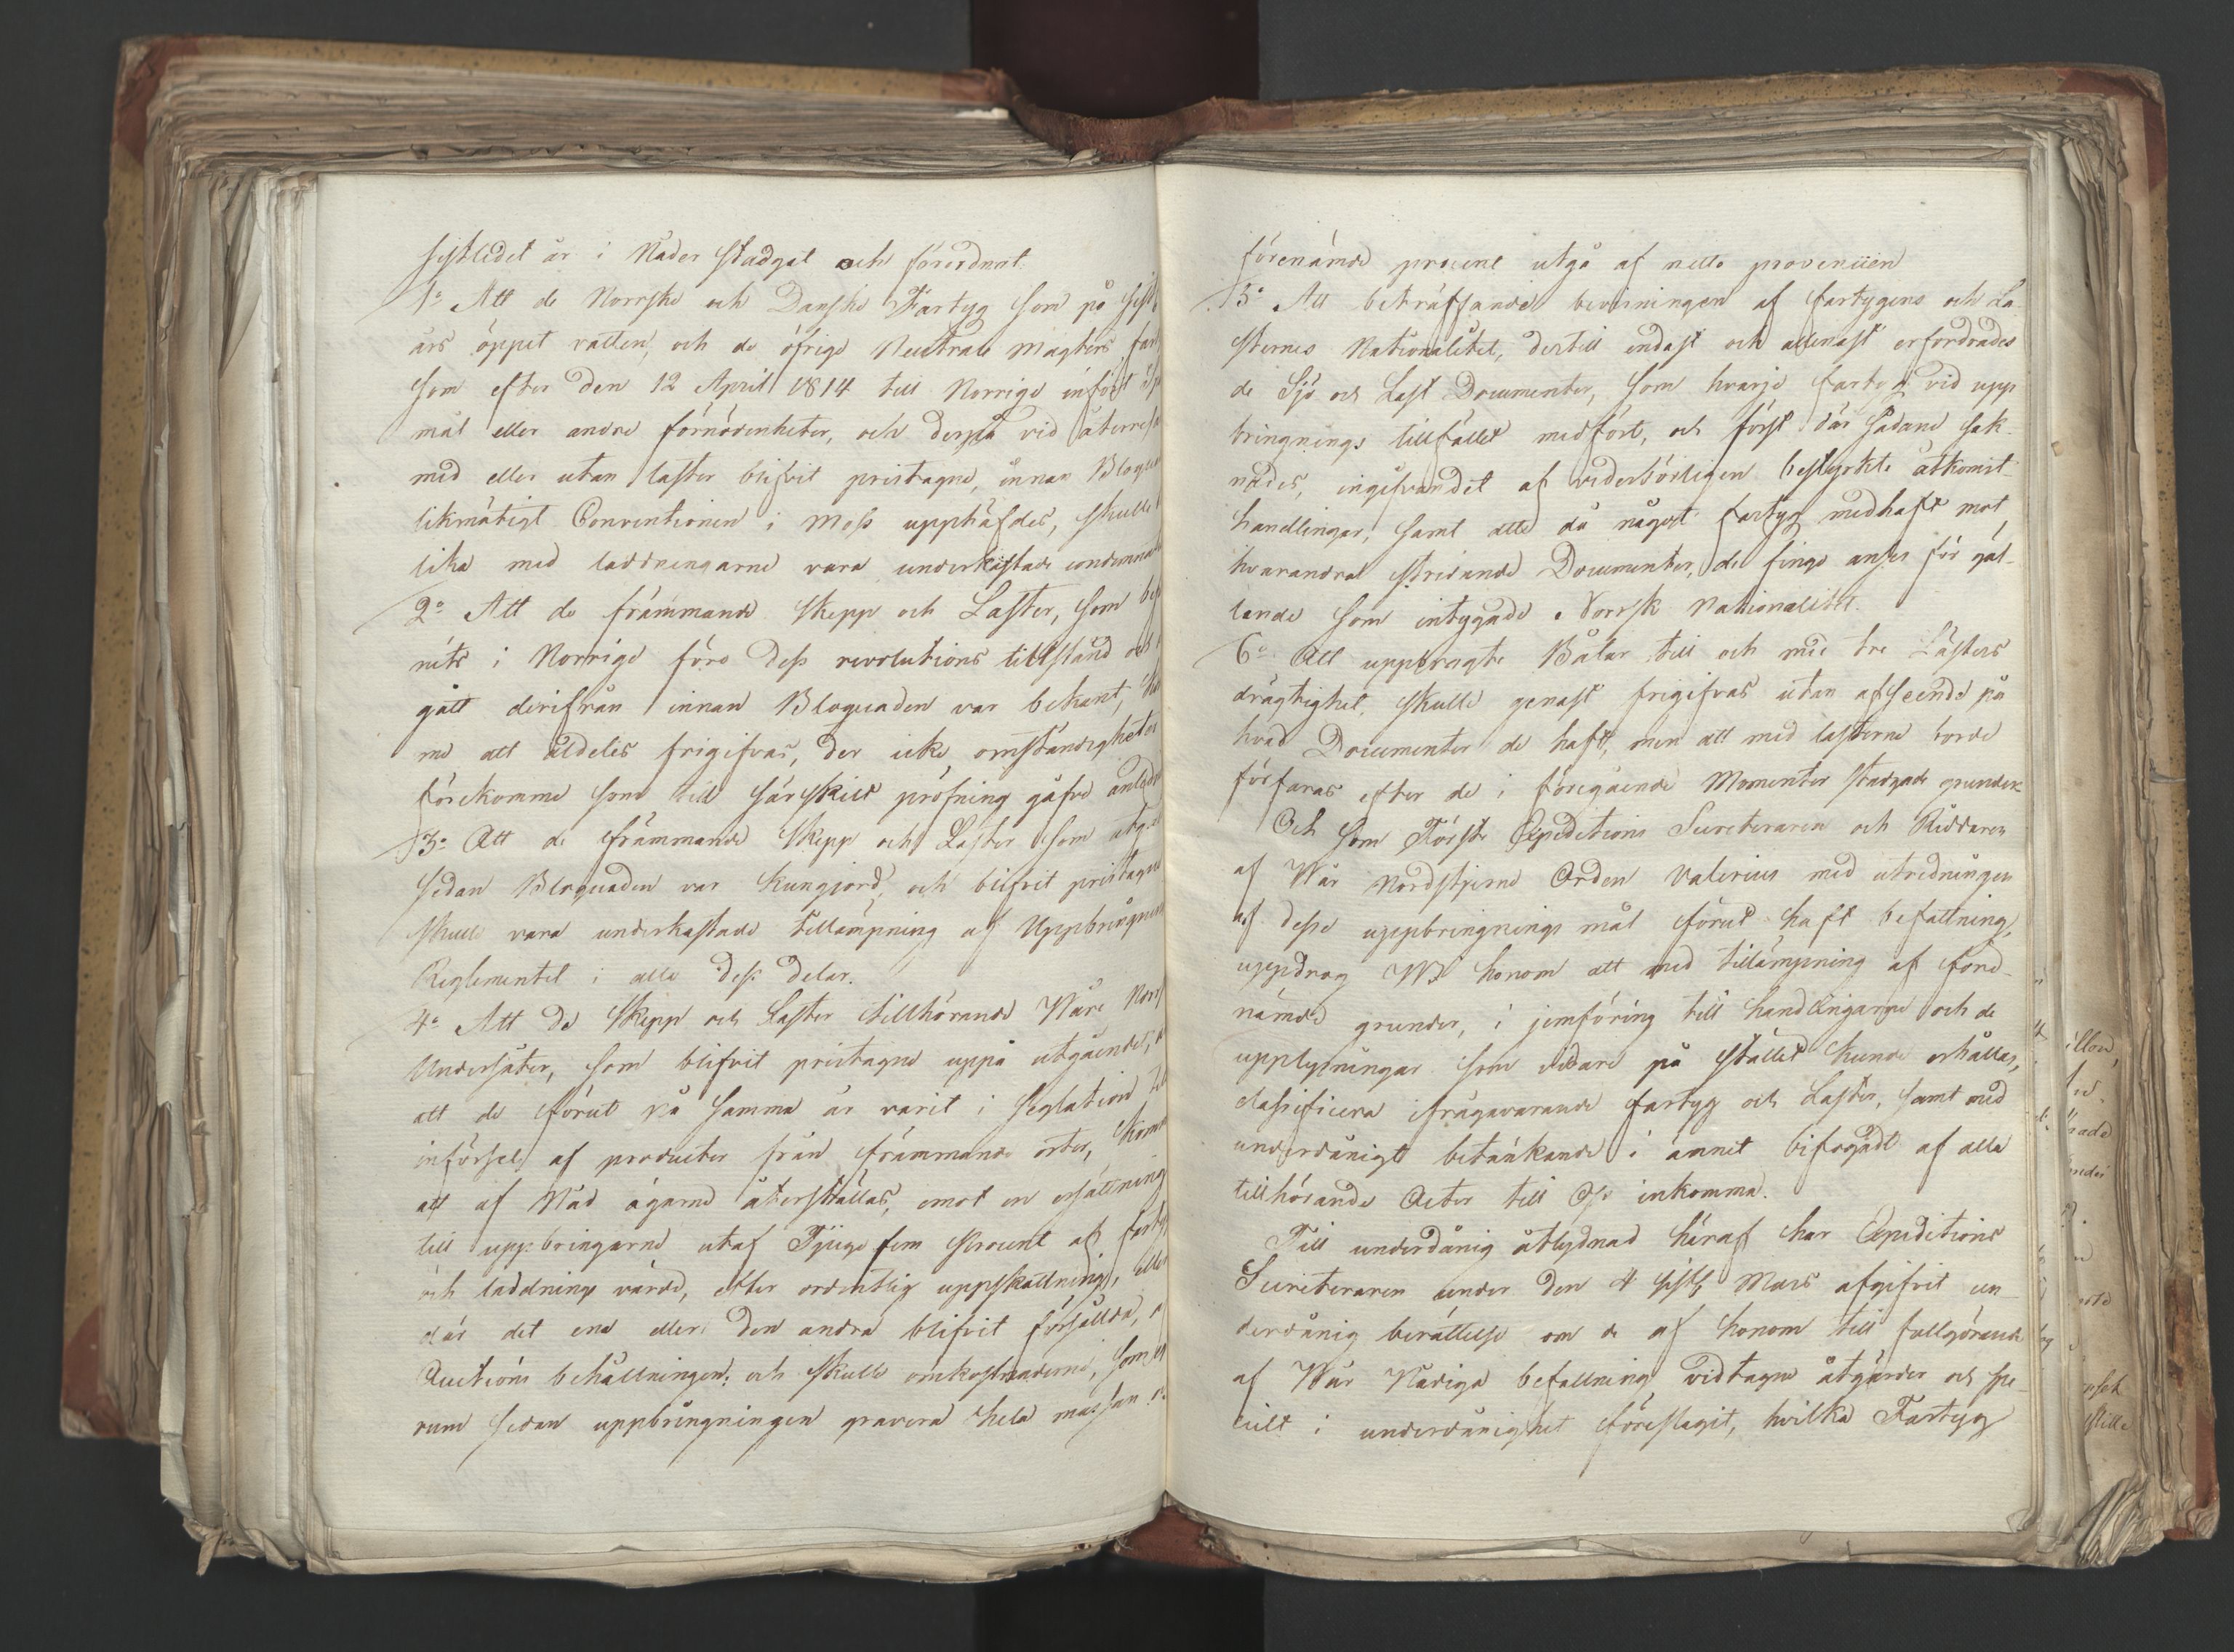 sistledet år i Nåder stadgat och förordnat.
1:o Att de Norrske och Danske Fartyg som på sist
års öppet vatten, och de öfrige Neutrale Magters fart
som efter den 12 April 1814 till Norrige infört Sp
mål eller andre förnödenheter, och derpå vid återresa
med eller utan laster blifvit pristagne, innan Bloqua
likmätigt Conventionen i Moss upphäfdes, skulle
lika med laddningarne vara underkastade condemnat
2:o Att de främmande Skepp och Laster, som bef
nits i Norrige före dess revolutions tillstånd och
gått derifrån innan Bloquaden var bekant, ko
me att aldeles frigifvas, der icke omständigheter
förekomme som till särskilt pröfning gåfve anled
3:o Att de främmande Skepp och Laster som utgå
sedan Bloquaden var kungjord, och blifvit pristagne
skulle vara underkastade tillämpning af Uppbringn
Reglementet i alla dess delar.
4:o Att de Skepp och Laster tillhörande Wåre Norr
Undersåter, som blifvit pristagne uppå utgående,
att de förut på samma år varit i seglation
införsel af producter från främmande orter, komm
att af Nåd ägarne återställas, emot en ersättning
till uppbringarne utaf Tjugo fem Procent af farty
och laddnings värde, efter ordentlig uppskattning, eller
där det ena eller den andra blifvit försållda, a
Auctions behållningen; och skulle omkostnaderne, som
rum sedan uppbringningen gravera hela massan
förenämde procent utgå af netto provenüen
5:o Att beträffande bevisningen af fartygens och La
sternes Nationalitet, dertill endast och allenast erfordrades
de Sjö och Last Documenter, som hvarje fartyg vid upp
bringnings tillfället medfört, och först där sådane sak-
nades, ingifvandet af vederbörligen bestyrkte åtkomst
handlingar, samt att då något fartyg medhaft mot
hvarandra stridande Documenter, de finge anses för gäl-
lande som intygade Norrsk Nationalitet.
6:o Att uppbragte Båtar till och med tre Lästers
drägtighet, skulle genast frigifvas utan afseende på
hvad Documenter de haft, men att med lasterne borde
förfaras efter de i föregående Momenter stadgade grunder.
Och som Förste Expeditions Secreteraren och Riddaren
af Wår Nordstjerne Orden Valerius med utredningen
af desse uppbringnings mål förut haft befattning,
uppdrog Wi honom att med tillämpning af före-
nämde grunder, i jemföring till handlingarne och de
upplysningar som vidare på stället kunde erhållas,
classificera ifrågavarande fartyg och Laster, samt med
underdånigt betänkande i ämnet bifogadt af alla
tillhörande Acter till Oss inkomma.
Till underdånig åtlydnad häraf har Expeditions
Secreteraren under den 4 sistl. Mars afgifvit un-
derdånig berättelse om de af honom till fullgörande
af Wår Nådiga befallning vidtagne åtgärder och spe-
cielt i underdånighet föreslagit, hvilka Fartyg